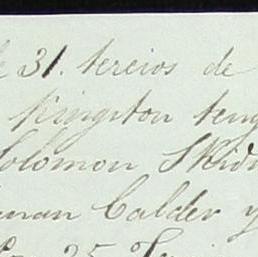 31. tercios de
Kingston teng
Solomon Skid
man Calder y
25